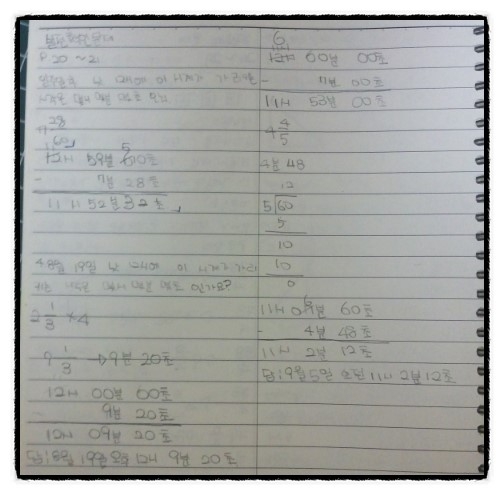 P 20 ~ 21
일주일 후 낮 12시에 이 시계가 가리키는
28
60
12시 59분 60초
- 7분 28초
11시 52분 32초
8월 19일 낮 12시에 이 시계가 가리
키는 시각은 몇시 몇분 몇초 인가요?
2 1/3 × 4
9 1/3 → 9분 20초
12시 00분 00초
9분 20초
12시 09분 20초
답 : 8월 19일 오후 12시 9분 20초
6
12시 60분 00초
- 7분 00초
11시 53분 00초
4 4/5
4분 48
12
5 60
5
10
10
0
11시 분 60초
- 4분 48초
11시 2분 12초
답 : 9월 5일 오전 11시 2분 12초